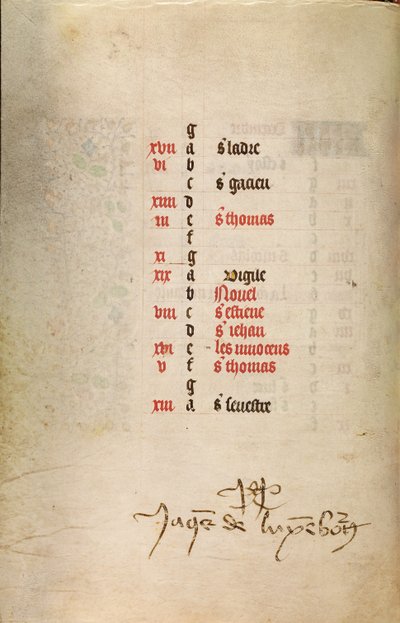 g
xvii a s' ladre
vi b
c s' gacien
xiiii d
iii e s' thomas
f
xi g
xix a vigile
b Nouel
viii c s' estiene
d s' iehan
xvi e les innocens
v f s' thomas
g
xiii a s' seuestre
Jaques de